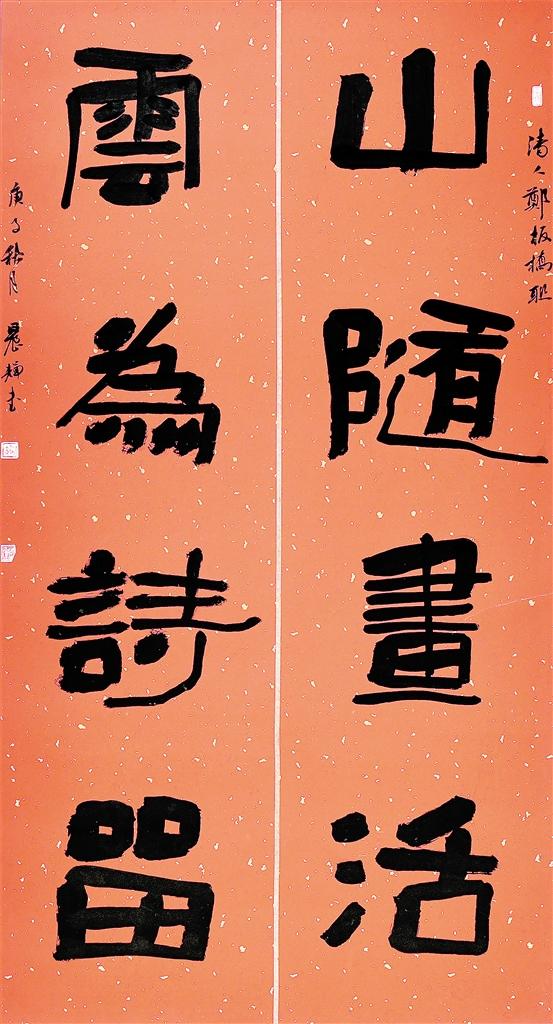 清人鄭板橋聯
山隨畫活
雲為詩留
庚子秋月 晨輝書